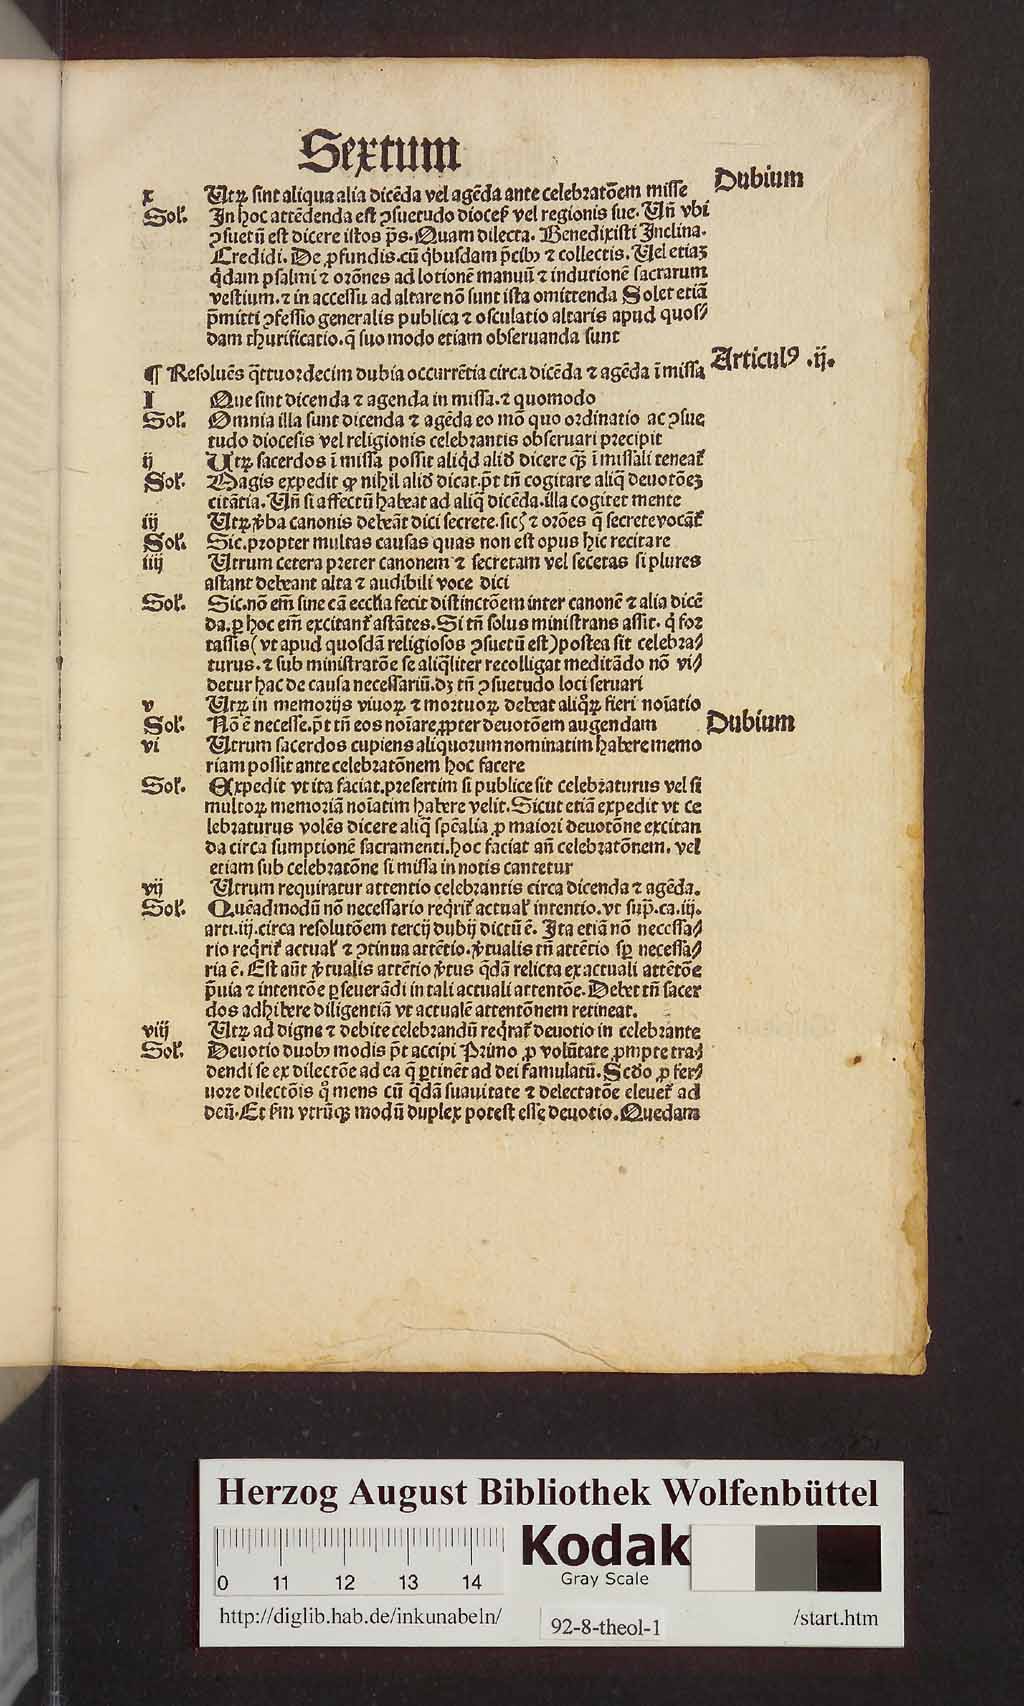 Sextum
Dubium
x Utrꝝ sint aliqua alia dicēda vel agēda ante celebratōem misse
Sol'. In hoc attēdenda est ꝯsuetudo dioceſ vel regionis sue. Uñ vbi
ꝯsuetū est dicere istos p̄s. Quam dilecta. Benedixisti Inclina.
Credidi. De ꝓfundis. cū qͥbusdam p̄cibꝫ ⁊ collectis. Uel etiaꝫ
qͥdam psalmi ⁊ orōnes ad lotionē manuū ⁊ indutionē sacrarum
vestium. ⁊ in accessu ad altare nō sunt ista omittenda Solet etiā
p̄mitti ꝯfessio generalis publica ⁊ osculatio altaris apud quos⸗
dam thurificatio. q̄ suo modo etiam obseruanda sunt
Articulꝰ .ij.
¶ Resoluēs q̄ttuordecim dubia occurrētia circa dicēda ⁊ agēda ī missa
I Que sint dicenda ⁊ agenda in missa. ⁊ quomodo
Sol'. Omnia illa sunt dicenda ⁊ agēda eo mō quo ordinatio ac ꝯsue
tudo diocesis vel religionis celebrantis obseruari precipit
ij Utrꝝ sacerdos ī missa possit aliqͥd aliđ dicere qꝫ̄ ī missali teneat᷑
Sol'. Magis expedit ꝙ nihil aliđ dicat. p̄t tñ cogitare aliq̄ deuotōeꝫ
citātia. Uñ si affectū habeat ad aliq̄ dicēda. illa cogitet mente
iij Utrꝝ v̓ba canonis debeāt dici secrete. sicꝫ ⁊ orōes q̄ secrete vocāt᷑
Sol'. Sic. propter multas causas quas non est opus hic recitare
iiij Utrum cetera preter canonem ⁊ secretam vel secetas si plures
astant debeant alta ⁊ audibili voce dici
Sol'. Sic. nō em̄ sine cā eccl'ia fecit distinctōem inter canonē ⁊ alia dicē
da. ꝑ hoc em̄ excitant᷑ astātes. Si tñ solus ministrans assit. qͥ for
tassis (vt apud quosdā religiosos ꝯsuetū est) postea sit celebra⸗
turus. ⁊ sub ministratōe se aliqͣliter recolligat meditādo nō vi⸗
detur hac de causa necessariū. dꝫ tñ ꝯsuetudo loci seruari
v Utrꝝ in memorijs viuoꝝ ⁊ mortuoꝝ debeat aliqͦꝝ fieri noīatio
Dubium
Sol'. Nō ē necesse. p̄t tñ eos noīare. ꝓpter deuotōem augendam
vi Utrum sacerdos cupiens aliquorum nominatim habere memo
riam possit ante celebratōnem hoc facere
Sol'. Expedit vt ita faciat. presertim si publice sit celebraturus vel si
multoꝝ memoriā noīatim habere velit. Sicut etiā expedit vt ce
lebraturus volēs dicere aliq̄ spēalia ꝓ maiori deuotōne excitan
da circa sumptionē sacramenti. hoc faciat añ celebratōnem. vel
etiam sub celebratōne si missa in notis cantetur
vij Utrum requiratur attentio celebrantis circa dicenda ⁊ agēda.
Sol'. Quēadmodū nō necessario reqͥrit᷑ actual' intentio. vt sup̄. ca. iij.
arti. iij. circa resolutōem tercij dubij dictū ē. Ita etiā nō necessa⸗
rio reqͥrit᷑ actual' ⁊ ꝯtinua attētio. v̓tualis tñ attētio sꝑ necessa⸗
ria ē. Est aūt v̓tualis attētio v̓tus qͣdā relicta ex actuali attētōe
p̄uia ⁊ intentōe ꝑseuerādi in tali actuali attentōe. Debet tñ sacer
dos adhibere diligentiā vt actualē attentōnem retineat.
viij Utrꝝ ad digne ⁊ debite celebrandū reqͥrat᷑ deuotio in celebrante
Sol'. Deuotio duobꝫ modis p̄t accipi Primo ꝓ volūtate ꝓmpte tra⸗
dendi se ex dilectōe ad ea q̄ ꝑtinēt ad dei famulatū. Scđo ꝓ fer⸗
uore dilectōis qͦ mens cū qͣdā suauitate ⁊ delectatōe eleuet᷑ ad
deū. Et s̓m vtrūqꝫ modū duplex potest esse deuotio. Quedam
Herzog August Bibliothek Wolfenbüttel
0 11 12 13 14
Kodak
Gray Scale
http://diglib.hab.de/inkunabeln/
92-8-theol-1
/start.htm